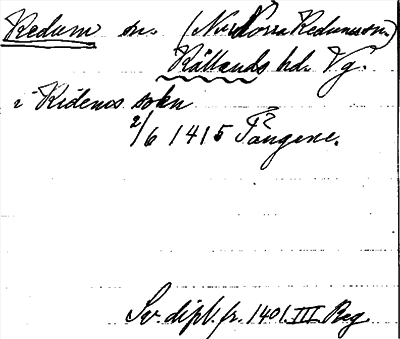 Redum sn. (Nu Norra Kedumssn.)
Kållands hd. Vg.
i Kidems sokn
2/6 1415 Tångene.
Sv. dipl. fr. 1401. III. Reg